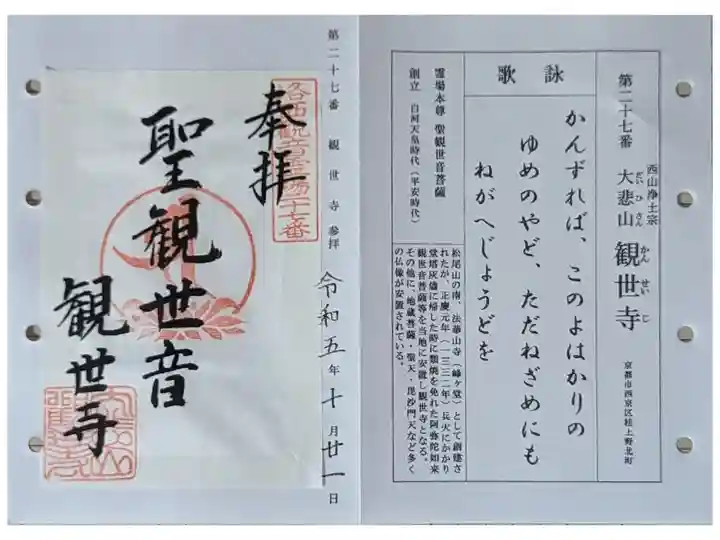 第二十七番
西山浄土宗
大悲山
だいひさん
観世寺
かんせいじ
京都市西京区桂上野北町
詠歌
かんずれば、このよはかりの
ゆめのやど、ただねざめにも
ねがへじょうどを
霊場本尊 聖観世音菩薩
創立 白河天皇時代（平安時代）
松尾山の南、法華山寺（峰ヶ堂）として創建さ
れたが、正慶元年（一三三二年）兵火にかかり
堂塔灰燼に帰した時に類焼を免れた阿弥陀如来
観世音菩薩等を当地に安置し観世寺となる。
その他に、地蔵菩薩・聖天・毘沙門天など多く
の仏像が安置されている。
第二十七番 観世寺参拝
令和五年十月廿一日
奉拝
洛西観音霊場二十七番
聖観世音
観世寺